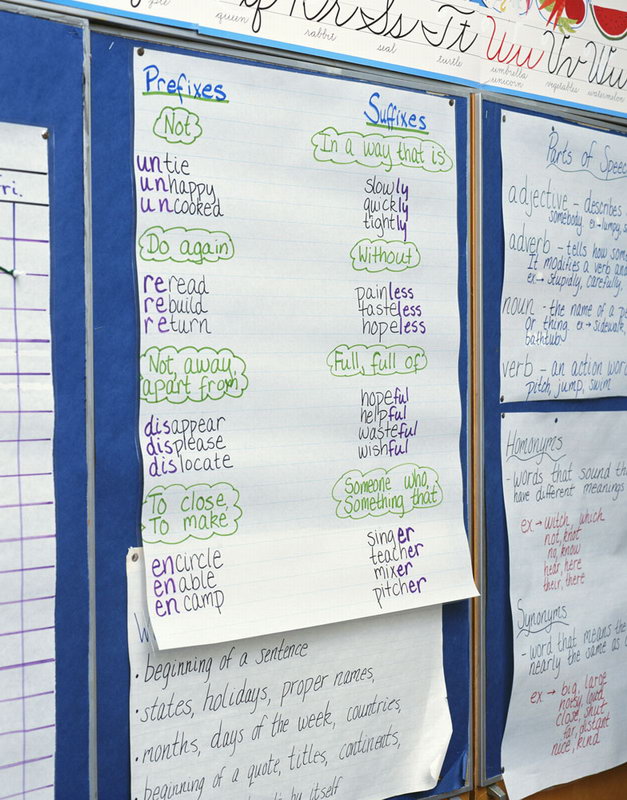 queen
rabbit
seal
turtle
umbrella
unicorn
vegetables
watermelon
Rr Ss Tt Uu Vv Ww
Fri.
Prefixes
Not
untie
unhappy
uncooked
Do again
reread
rebuild
return
Not, away,
apart from
disappear
displease
dislocate
To close,
To make
encircle
enable
encamp
Suffixes
In a way that is
slowly
quickly
tightly
Without
painless
tasteless
hopeless
Full, full of
hopeful
helpful
wasteful
wishful
Someone who,
Something that
singer
teacher
mixer
pitcher
• beginning of a sentence
• states, holidays, proper names,
• months, days of the week, countries,
beginning of a quote, titles, continents,
by itself
Parts of Speec
adjective - describes
somebody ex→ lumpy, s
adverb - tells how som
It modifies a verb and
ex→ stupidly, carefully
noun - the name of a pe
or thing. ex→ sidewalk,
bathtub
verb - an action word
pitch, jump, swim
Homonyms
- words that sound th
have different meanings
ex → witch, which
not, knot
no, know
hear, here
their, there
Synonyms
- word that means the
nearly the same as
ex → big, large
noisy, loud
close, shut
far, distant
nice, kind